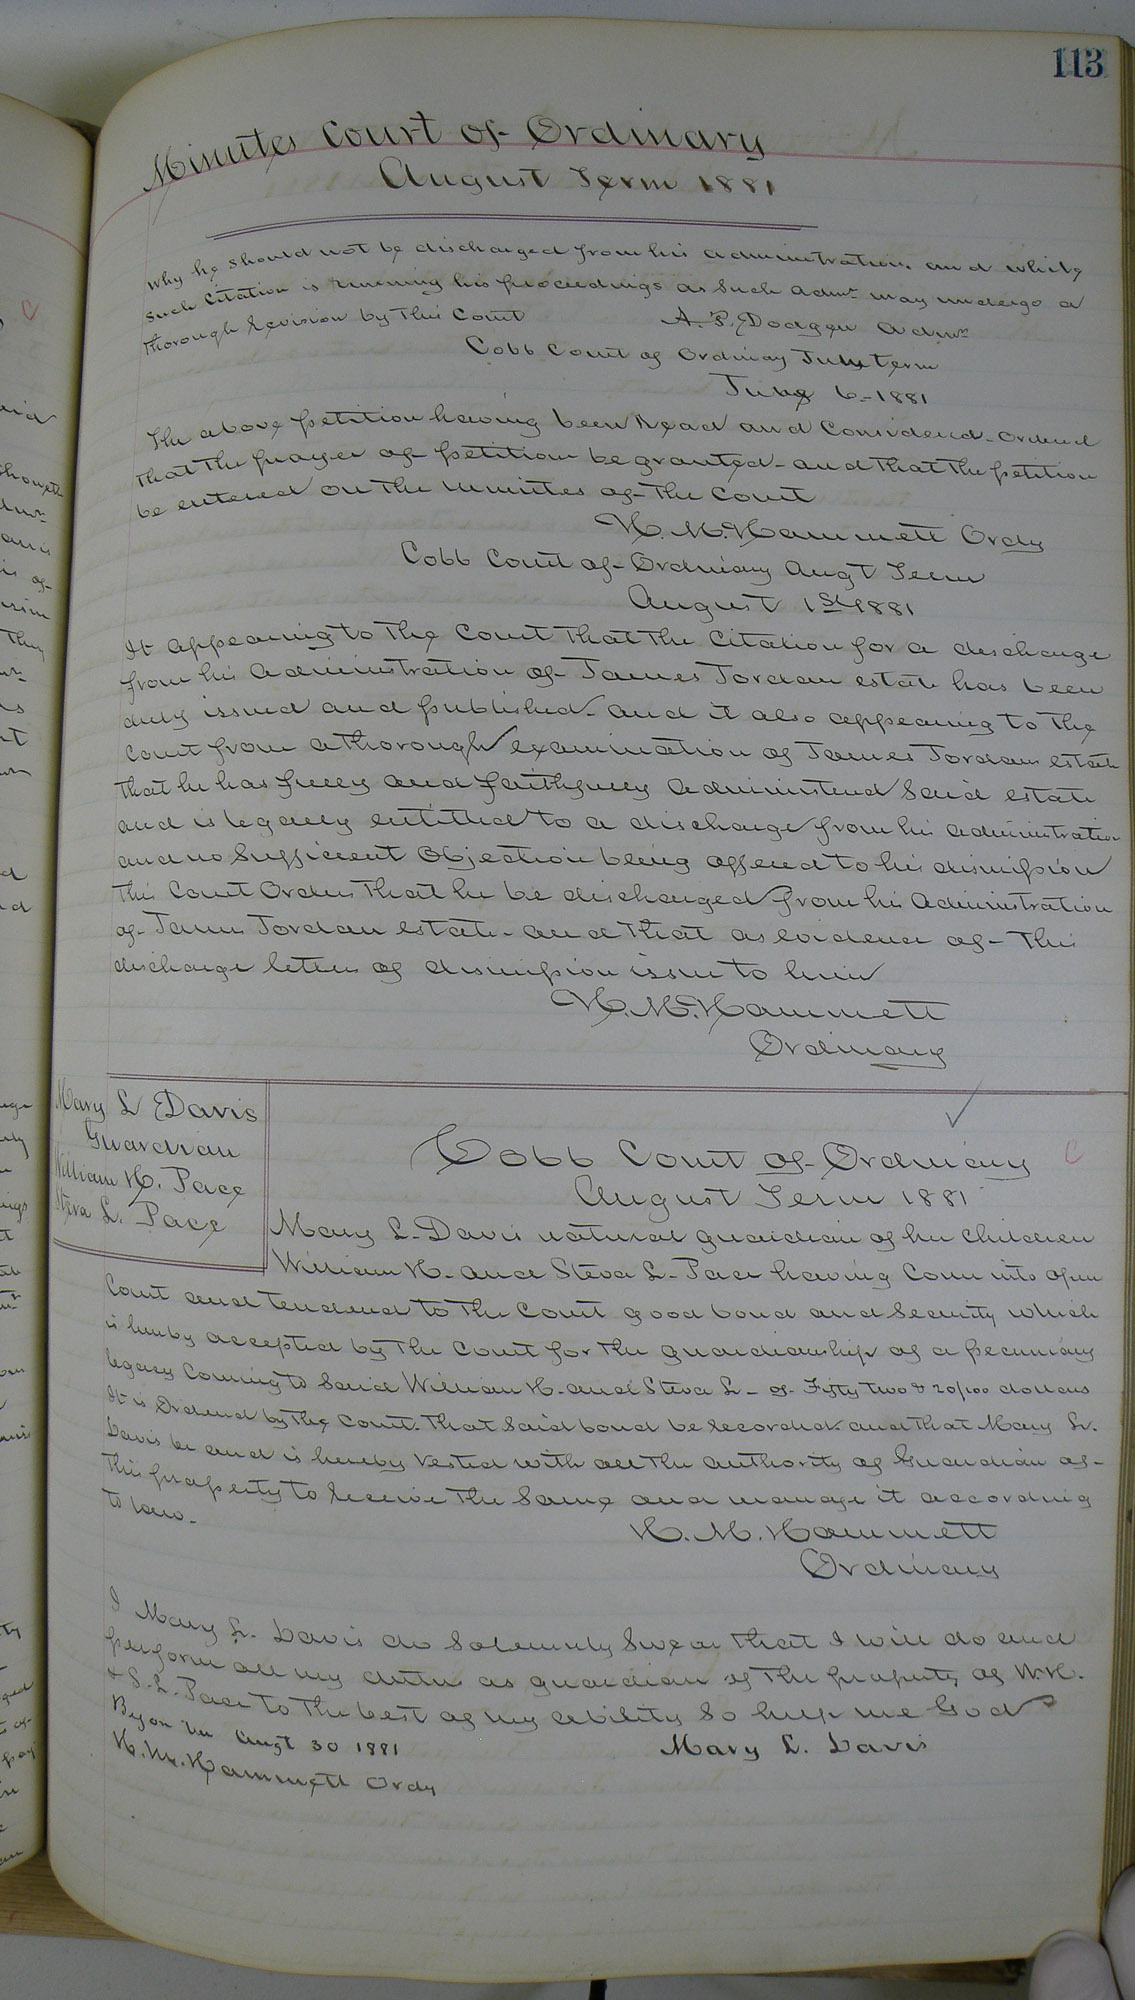 113
Minutes Court of Ordinary
August Term 1881
Why he should not be discharged from his administration. and while
such Citation is running his proceedings as such admr may undergo a
thorough revision by this Court
A. P. Dodgen admr
Cobb Court of Ordinary July term
July 6-1881
The above petition having been read and considered-ordered
that the prayer of petition be granted-and that the petition
be entered on the minutes of the Court
H. M. Hammett Ordy
Cobb Court of Ordinary Augt Term
August 1st 1881
It appearing to the Court that the Citation for a discharge
from his administration of James Jordan estate has been
duly issued and published-and it also appearing to the
Court from a thorough examination of James Jordan estate
that he has fully and faithfully administered said estate
and is legally entitled to a discharge from his administration
and no sufficient objection being offered to his dismission
this Court Orders that he be discharged from his administration
of James Jordan estate-and that as evidence of this
discharge letters of dismission issue to him
H. M. Hammett
Ordinary
Mary L Davis
Guardian
William H. Pace
Steva L. Pace
Cobb Court of Ordinary
August Term 1881
Mary L. Davis natural guardian of her children
William H. and Steva L. Pace having come into open
Court and tendered to the Court good bond and security which
is hereby accepted by the Court for the guardianship of a pecuniary
legacy coming to said William H. and Steva L- of Fifty two & 20/100 dollars
It is Ordered by the Court. that said bond be recorded-and that Mary L.
Davis be and is hereby vested with all the authority of Guardian of
this property to receive the same and manage it according
to law.
H. M. Hammett
Ordinary
I Mary L. Davis do solemnly swear that I will do and
perform all my duties as guardian of the property of W.H.
& S.L. Pace to the best of my ability so help me God
Augt 30 1881
Mary L. Davis
H. M. Hammett Ordy